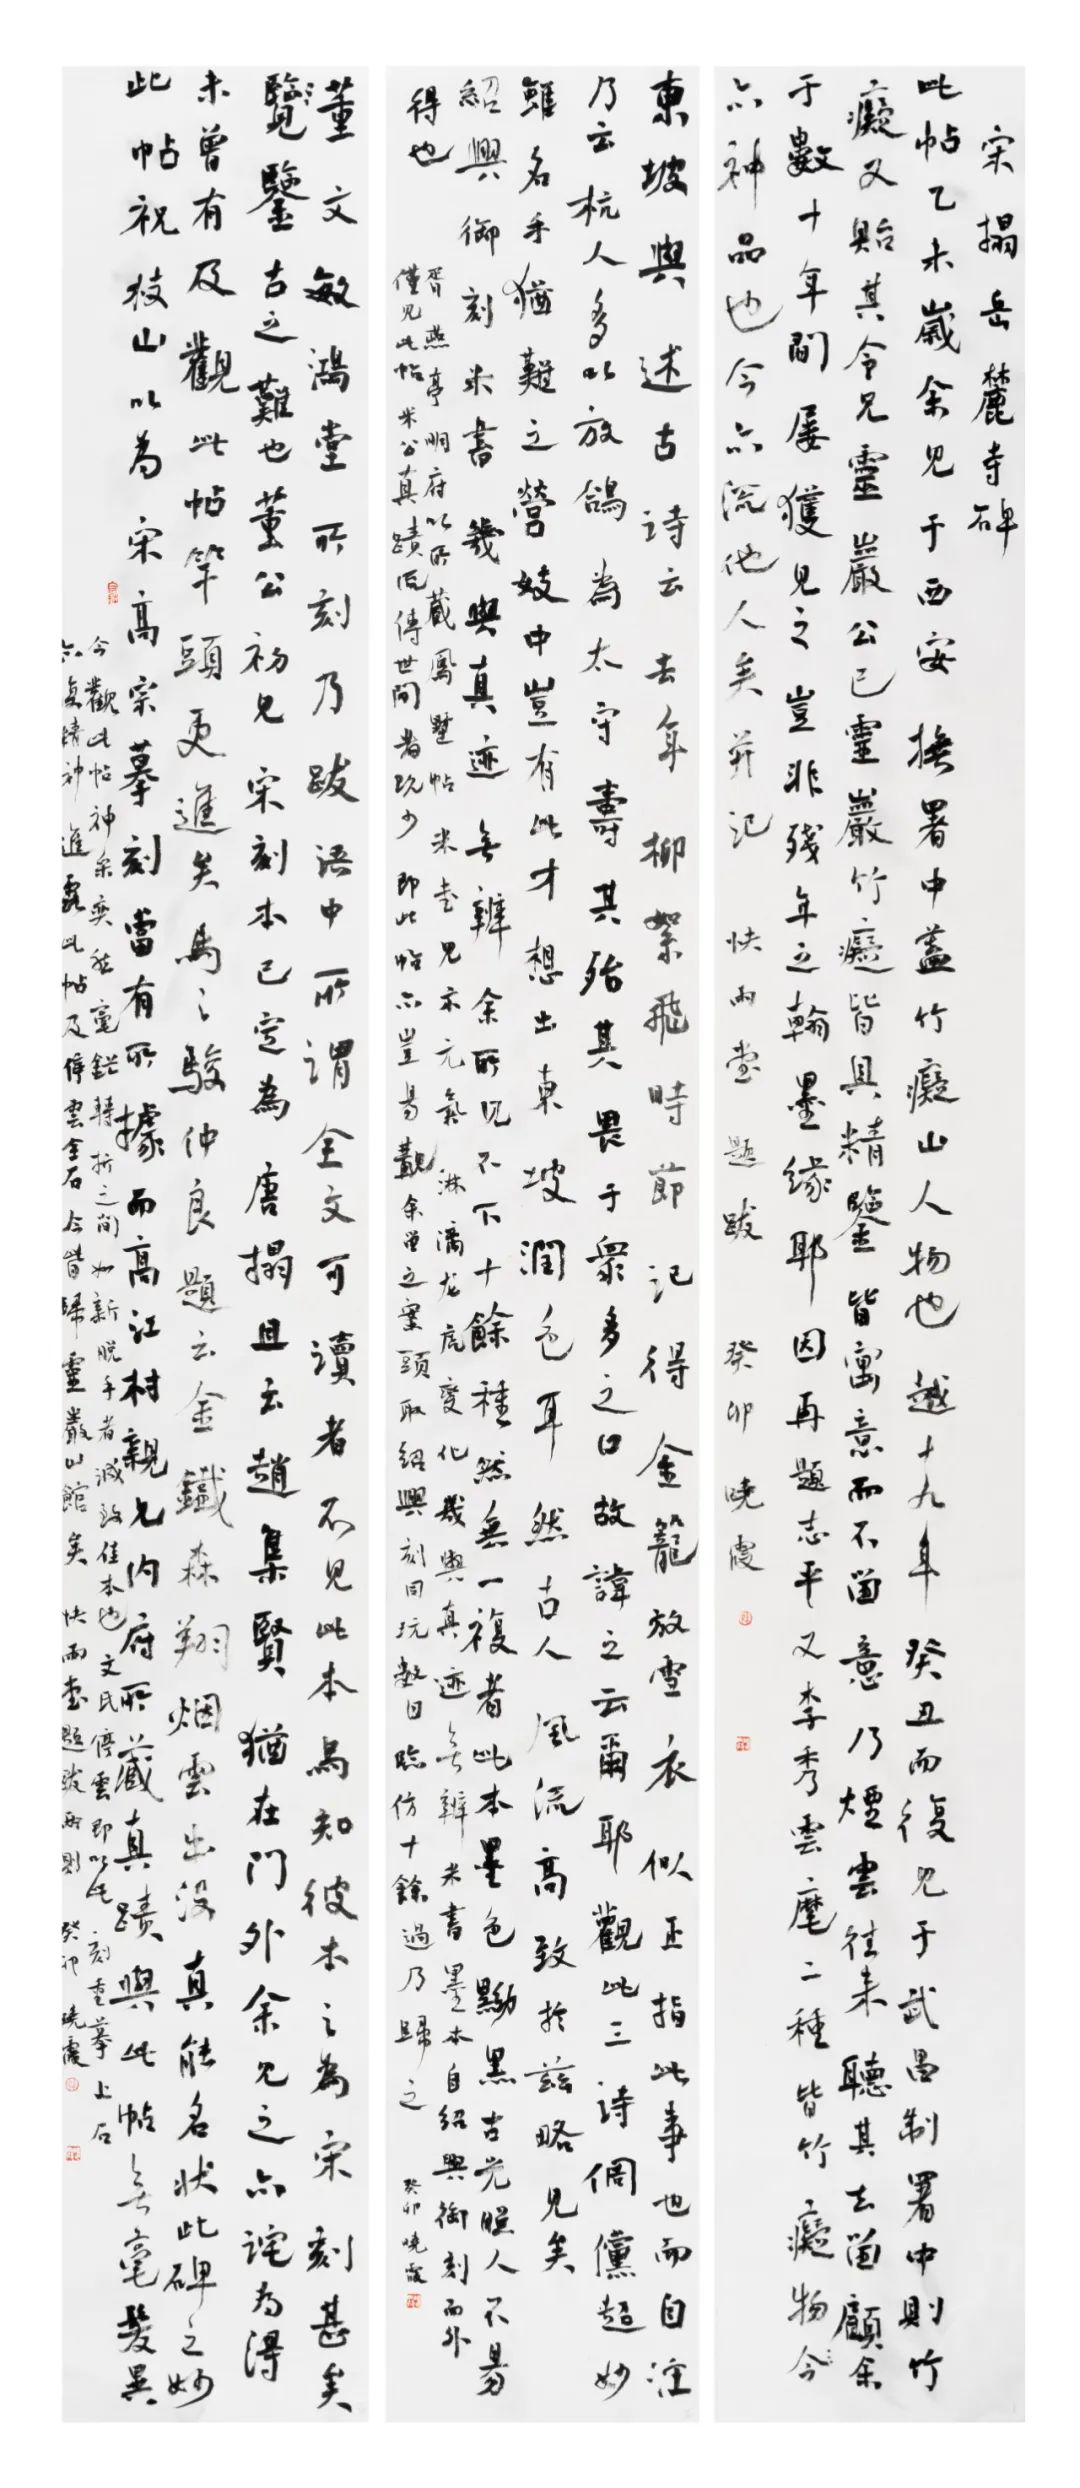 宋搨岳麓寺碑
此帖乙未歲余見于西安撫署中蓋竹癡山人物也越十九年癸丑而復見于武昌制署中則竹
癡又貽其令兄靈巖公已靈巖竹癡皆具精鑒皆寓意而不留意乃煙雲往來聽其去留顧余
于數十年間屢獲見之豈非殘年之翰墨緣耶因再題志平又李秀雲麾二種皆竹癡物今
亦神品也今亦流他人矣并記 快雨堂題跋 癸卯曉霞
東坡與述古詩云去年柳絮飛時節記得金籠放雪衣似正指此事也而自注
乃云杭人多以放鴿為太守壽其殆其畏于衆多之口故諱之云爾耶觀此三詩倜儻超妙
雖名手猶難之營妓中豈有此才想出東坡潤色耳然古人風流高致於茲略見矣
紹興御刻米書幾與真迹無辨余所見不下十餘種然無一複者此本墨色黝黑古光照人不易
得也
胥燕亭明府以所藏鳳墅帖米書見示元氣淋漓龙虎變化幾與真迹無辨米書墨本自紹興御刻而外
僅見此帖米公真蹟流傳世間者既少即此帖亦豈易觀余留之案頭取紹興刻同玩數日臨仿十餘過乃歸之 癸卯曉霞
董文敏鴻堂所刻乃跋語中所謂全文可讀者不見此本焉知彼本之為宋刻甚矣
覽鑒古之難也董公初見宋刻本已定為唐搨且云趙集賢猶在門外余見之亦詫為得
未曾有及觀此帖筆頭更進矣馬之駿仲良題云金鐵森翔烟雲出沒真能名狀此碑之妙
此帖祝枝山以為宋高宗摹刻當有所據而高江村親見內府所藏真蹟與此帖無毫髮異
今觀此帖神采奕然毫鋩轉折之間如新脫手者減致佳本也文氏停雲即以此刻重摹上石
亦復精神進露此帖及停雲全石今皆歸靈巖山館矣 快雨堂題跋兩則 癸卯曉霞